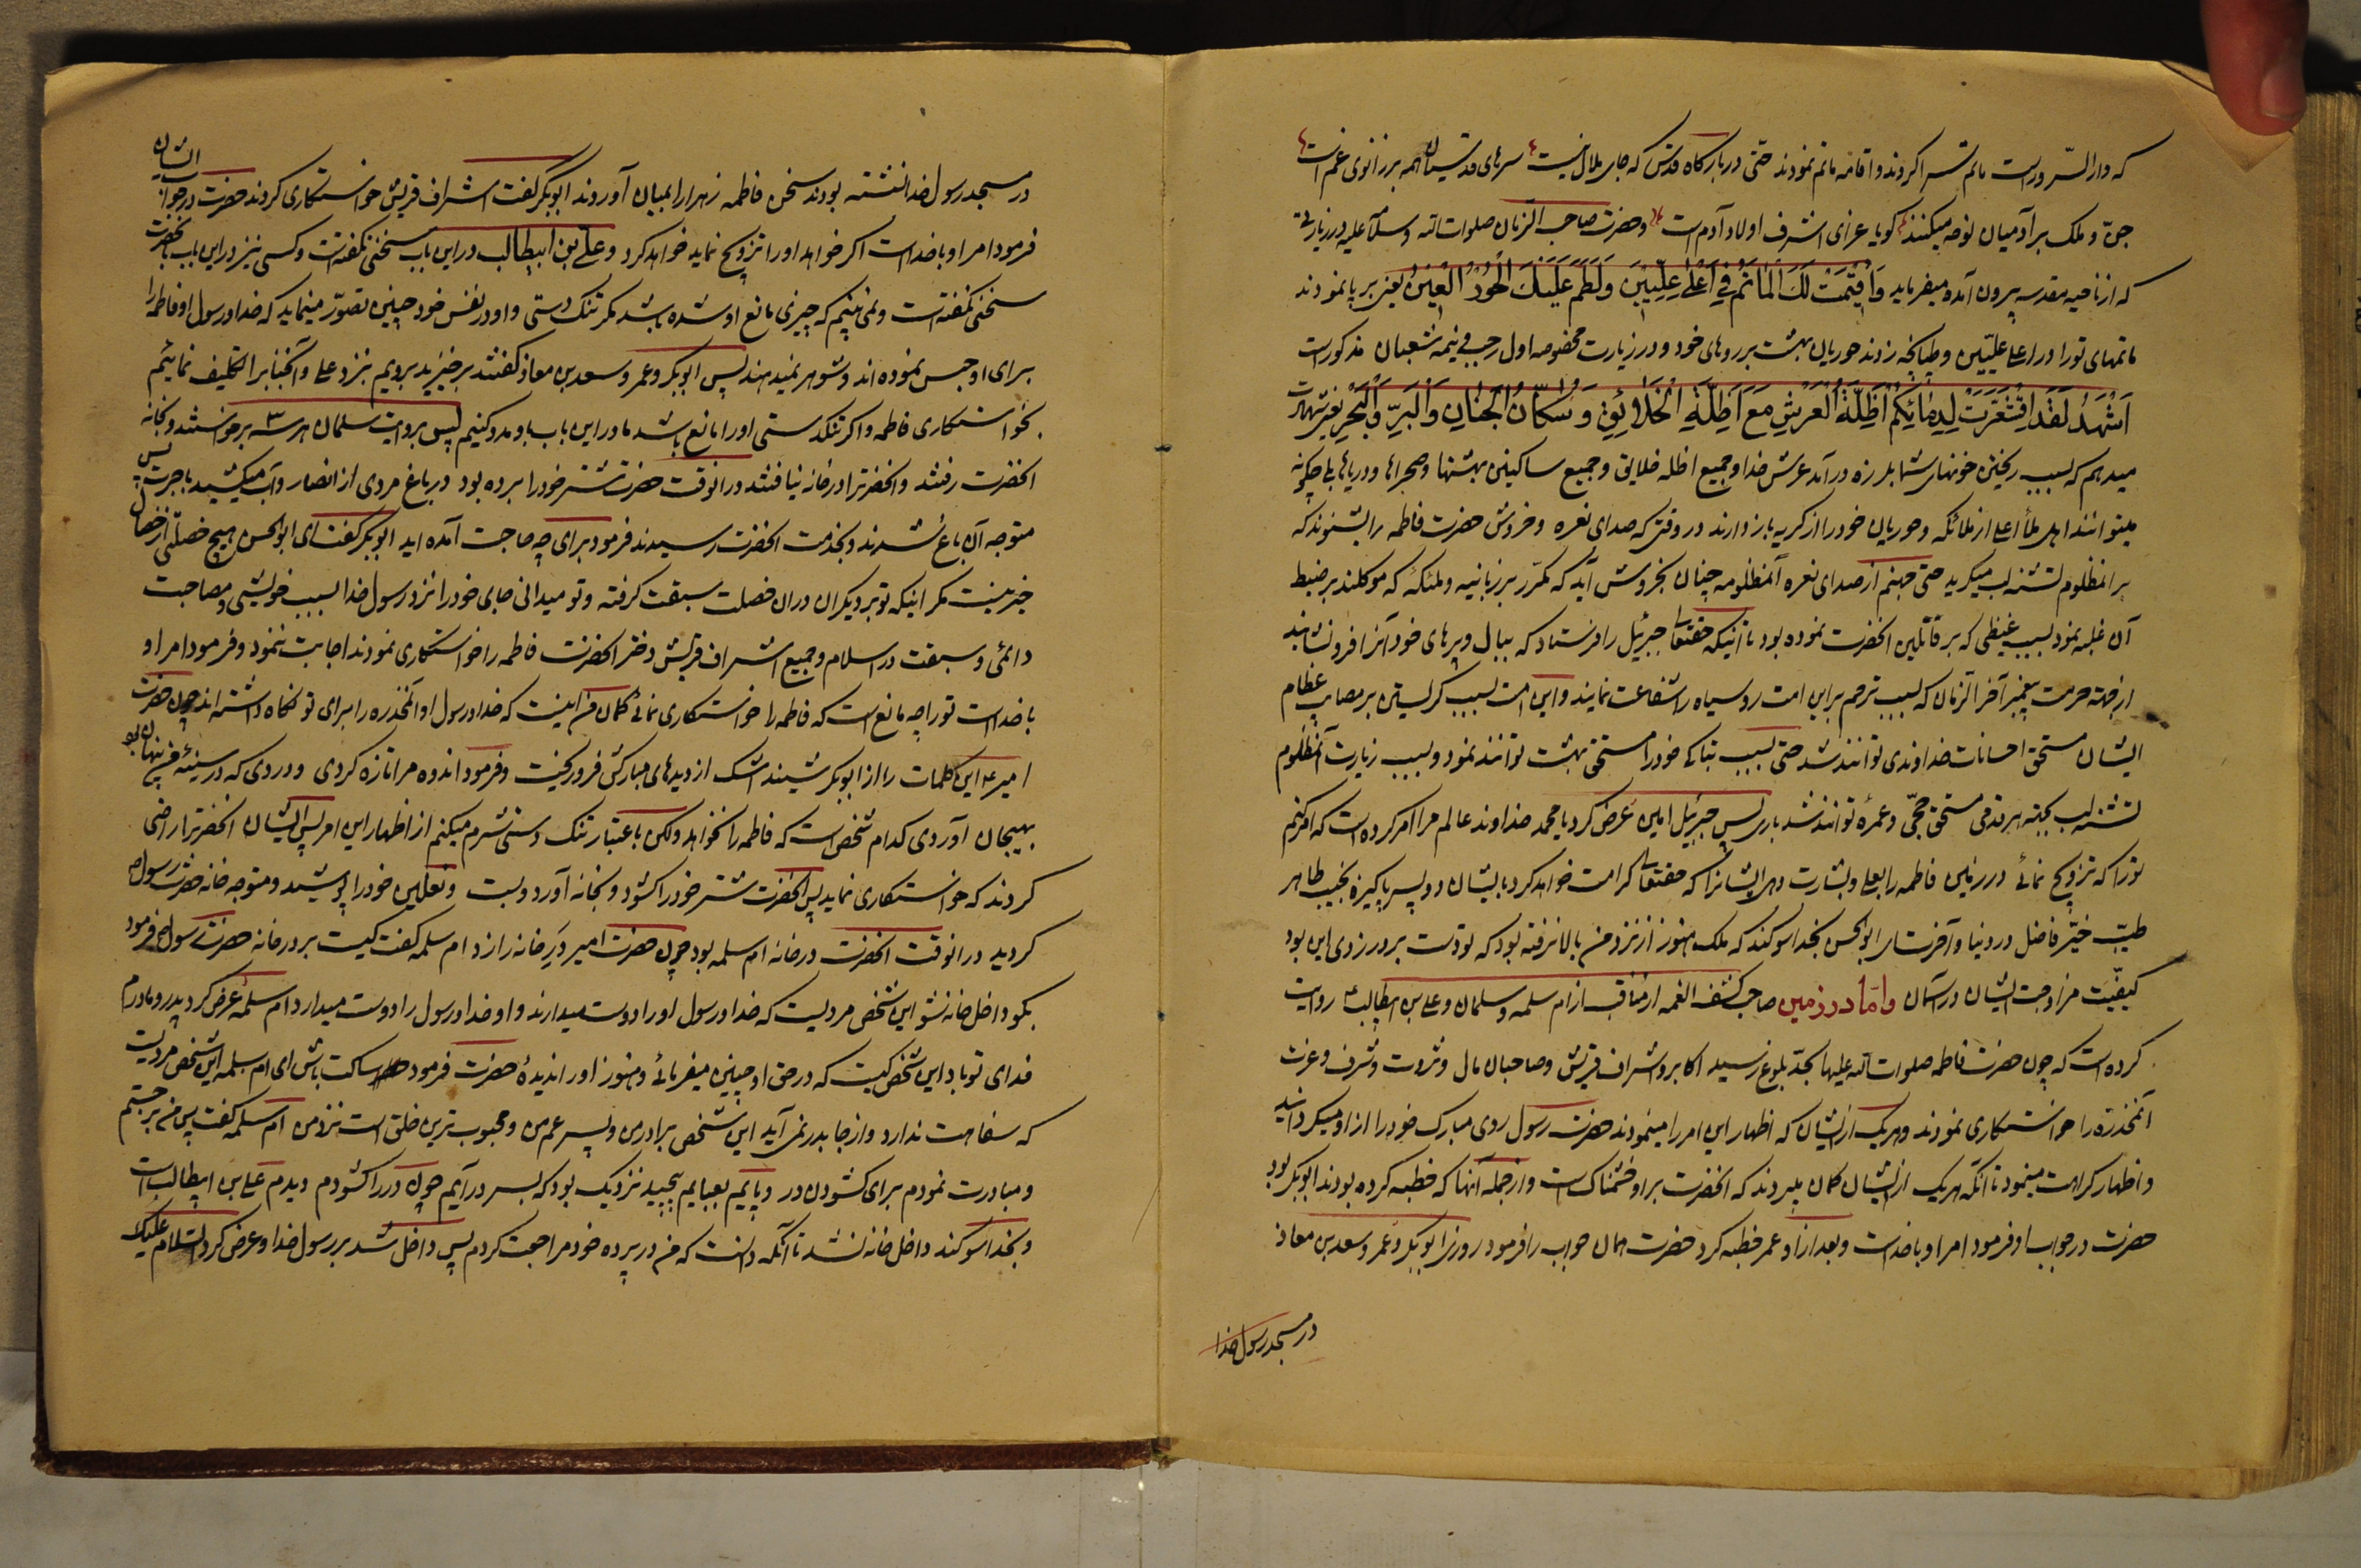 که دار السّرور است ماتم سرا کردند و اقامه ماتم نمودند حتّی در بارکاه قدس که جای ملال نیست سرهای قدسیان همه بر زانوی غم است
جنّ و ملک بر آدمیان نوحه میکنند کویا عزای اشرف اولاد آدم است و حضرت صاحب الزمان صلوات الله و سلامه علیه در زیارتی
که از ناحیه مقدسه بیرون آمده میفرماید وَاُقیمَتْ لَکَ الْمَاتَمُ فی اَعْلیٰ عِلّیّینَ وَلَطَمَ عَلَیْکَ الْحُورُ الْعِینُ یعنی بر پا نمودند
ماتمهای تو را در اعلی علیّین و طپانچه زدند حوریان بهشت بر روهای خود و در زیارت مخصوصه اول رجب و نیمه شعبان مذکور است
اَشْهَدُ لَقَدِ اقْشَعَرَّتْ لِدِمٰائِکُمْ اَظِلَّةُ الْعَرْشِ مَعَ اَظِلَّةِ الْخَلٰائِقِ وَ سُکّٰانُ الْجِنٰانِ وَ الْبَرِّ وَ الْبَحْرِ یعنی شهادت
میدهم که بسبب ریختن خونهای شما بلرزه در آمد عرش خدا و جمیع اظله خلایق و جمیع ساکنین بهشتها و صحراها و دریاها بلی چکونه
میتوانند اهل ملأ اعلی از ملائکه و حوریان خود را از کریه باز دارند در وقتی که صدای نعره و خروش حضرت فاطمه را بشنوند که
بر انمظلوم تشنه لب میکرید حتی جهنم از صدای نعره آنمظلومه چنان بخروش آید که مکرّر بر زبانیه و ملئکهٔ که موکلند بر ضبط
آن غلبه نمود بسبب غیظی که بر قاتلین انحضرت نموده بود تا آنیکه حقتعالی جبرئیل را فرستاد که ببال و پرهای خود آنرا فرو نشانید
از جهة حرمت پیغمبر آخر الزمان که بسبب ترحم بر این امت رو سیاه را شفاعت نمایند و این امت بسبب کریستن بر مصایب عظام
ایشان مستحق احسانات خداوندی توانند شد حتی بسبب تباکی خود را مستحق بهشت توانند نمود و بسبب زیارت آنمظلوم
تشنه لب بجهة هر قدمی مستحق حجّی و عمرهٔ توانند شد باری پس جبرئیل امین عرض کرد یا محمد خداوند عالم مرا امر کرده است که امر کنم
تو را که تزویج نمائی در زمین فاطمه را بعلی و بشارت دهی ایشانرا که حقتعالی کرامت خواهد کرد بایشان دو پسر پاکیزهٔ نجیب طاهر
طیّب خیّر فاضل در دنیا و آخرت ای ابو الحسن بخدا سوکند که ملک هنوز از نزد من بالا نرفته بود که تو دست بر در زدی این بود
کیفیّت مزاوجت ایشان در آسمان و امّا در زمین صاحب کشف الغمه از مناقب از ام سلمه و سلمان و علی بن ابیطالب ع روایت
کرده است که چون حضرت فاطمه صلوات الله علیها بحدّ بلوغ رسید اکابر و اشراف قریش و صاحبان مال و ثروت و شرف و عزت
آنمخدره را خواستکاری نمودند و هر یک از ایشان که اظهار این امر را مینمودند حضرت رسول روی مبارک خود را از او میکردانید
و اظهار کراهت مینمود تا آنکه هر یک از ایشان کمان میبردند که انحضرت بر او خشمناک است و از جمله آنها که خطبه کرده بودند ابو بکر بود
حضرت در جواب او فرمود امر او با خداست و بعد از او عمر خطبه کرد حضرت همان جواب را فرمود روزی ابو بکر و عمر و سعد بن معاذ
در مسجد رسول خدا
در مسجد رسول خدا نشسته بودند سخن فاطمه زهرا را بمیان آوردند ابو بکر کفت اشراف قریش خواستکاری کردند حضرت در جواب ایشان
فرمود امر او با خداست اکر خواهد او را تزویج نماید خواهد کرد و علی بن ابیطالب در این باب سخنی نکفته است و کسی نیز در این باب بانحضرت
سخنی نکفته است و نمی بینم که چیزی مانع او شده باشد مکر تنک دستی و او در نفس خود چنین تصوّر مینماید که خدا و رسول او فاطمه را
برای او حبس نموده اند و بشوهر نمیدهند پس ابو بکر و عمر و سعد بن معاذ کفتند برخیزید برویم بنزد علی و آنجناب را تکلیف نمائیم
بخواستکاری فاطمه و اکر تنکدستی او را مانع باشد ما در این باب باو مدد کنیم پس بروایت سلمان هر سه برخواستند و بخانه
انحضرت رفتند و انحضرترا در خانه نیافتند در انوقت حضرت شتر خود را برده بود در باغ مردی از انصار و آب میکشید باجرت پس
متوجه آن باغ شدند و بخدمت انحضرت رسیدند فرمود برای چه حاجت آمده اید ابو بکر کفت ای ابو الحسن هیچ خصلتی از خصال
خیر نیست مکر اینکه تو بر دیکران در ان خصلت سبقت کرفته و تو میدانی جای خود را نزد رسول خدا بسبب خویشی و مصاحبت
دائمی و سبقت در اسلام و جمیع اشراف قریش دختر انحضرت فاطمه را خواستکاری نمودند اجابت ننمود و فرمود امر او
با خداست تو را چه مانع است که فاطمه را خواستکاری نمائی کمان من اینست که خدا و رسول او آنمخدره را برای تو نکاه داشته اند چون حضرت
امیر ع این کلمات را از ابو بکر شنید اشک از دیدهای مبارکش فرو ریخت و فرمود اندوه مرا تازه کردی و دردی که در سینهٔ من پنهان بود
بهیجان آوردی کدام شخص است که فاطمه را نخواهد ولکن باعتبار تنک دستی شرم میکنم از اظهار این امر پس ایشان انحضرترا راضی
کردند که خواستکاری نماید پس انحضرت شتر خود را کشود و بخانه آورد و بست و نعلین خود را پوشید و متوجه خانه حضرت رسول ص
کردید در انوقت انحضرت در خانه ام سلمه بود چون حضرت امیر درِ خانه را زد ام سلمه کفت کیست بر در خانه حضرت رسول ص فرمود
بکو داخل خانه شو این شخص مردیست که خدا و رسول او را دوست میدارند و او خدا و رسول را دوست میدارد ام سلمه عرض کرد پدر و مادرم
فدای تو باد این شخص کیست که در حق او چنین میفرمائی و هنوز او را ندیدهٔ حضرت فرمود ساکت باش ای ام سلمه این شخص مردیست
که سفاهت ندارد و از جا بدر نمی آید این شخص برادر من و پسر عم من و محبوب ترین خلق است نزد من ام سلمه کفت پس من برجستم
و مبادرت نمودم برای کشودن در و پایم بعبایم پیچید نزدیک بود که بسر در آیم چون در را کشودم دیدم علی بن ابیطالب است
و بخدا سوکند داخل خانه نشد تا آنکه دانست که من در پرده خود مراجعت کردم پس داخل شد بر رسول خدا و عرض کرد السّلام علیک